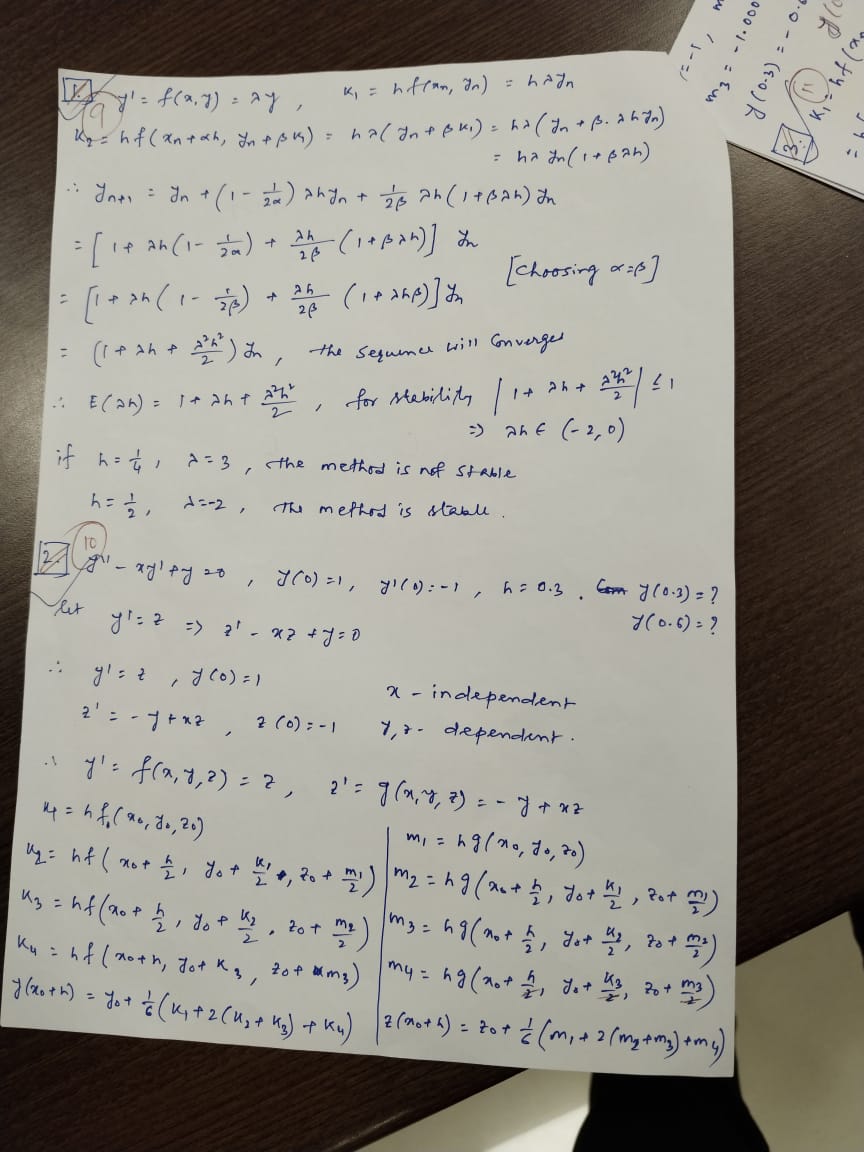 1.
9
y' = f(x,y) = λy , K₁ = hf(xn, yn) = hλyn
K₂ = hf(xn+αh, yn+βK₁) = hλ(yn+βK₁) = hλ(yn+β·λhyn)
= hλyn(1+βλh)
∴ yn+1 = yn + (1 - 1/2α) λhyn + 1/2β λh(1+βλh) yn
= [1+ λh(1 - 1/2α) + λh/2β (1+βλh)] yn
[choosing α=β]
= [1+λh(1 - 1/2β) + λh/2β (1+λhβ)] yn
= (1+λh+ λ²h²/2) yn , the sequence will converges
∴ E(λh) = 1+λh+ λ²h²/2 , for stability |1+λh+ λ²h²/2| ≤ 1
⇒ λh ∈ (-2,0)
if h = 1/4 , λ=3 , the method is not stable
h = 1/2 , λ=-2 , the method is stable.
2.
10
y'' - xy' + y = 0 , y(0)=1, y'(0)=-1 , h=0.3 . y(0.3)=?
y(0.6)=?
let
y'=z ⇒ z' - xz + y = 0
∴ y'=z , y(0)=1
x - independent
z' = -y+xz , z(0)=-1
y,z - dependent.
∴ y' = f(x,y,z) = z , z' = g(x,y,z) = -y+xz
K₁ = hf(x₀,y₀,z₀)
K₂ = hf(x₀+ h/2, y₀+ K₁/2, z₀+ m₁/2)
K₃ = hf(x₀+ h/2, y₀+ K₂/2, z₀+ m₂/2)
K₄ = hf(x₀+h, y₀+K₃, z₀+m₃)
y(x₀+h) = y₀+ 1/6 (K₁+2(K₂+K₃)+K₄)
m₁ = hg(x₀,y₀,z₀)
m₂ = hg(x₀+ h/2, y₀+ K₁/2, z₀+ m₁/2)
m₃ = hg(x₀+ h/2, y₀+ K₂/2, z₀+ m₂/2)
m₄ = hg(x₀+h, y₀+K₃, z₀+m₃)
z(x₀+h) = z₀+ 1/6 (m₁+2(m₂+m₃)+m₄)
m₃ = -1.000
y(0.3) = -0.
3.
11
K₁ = hf(x₀